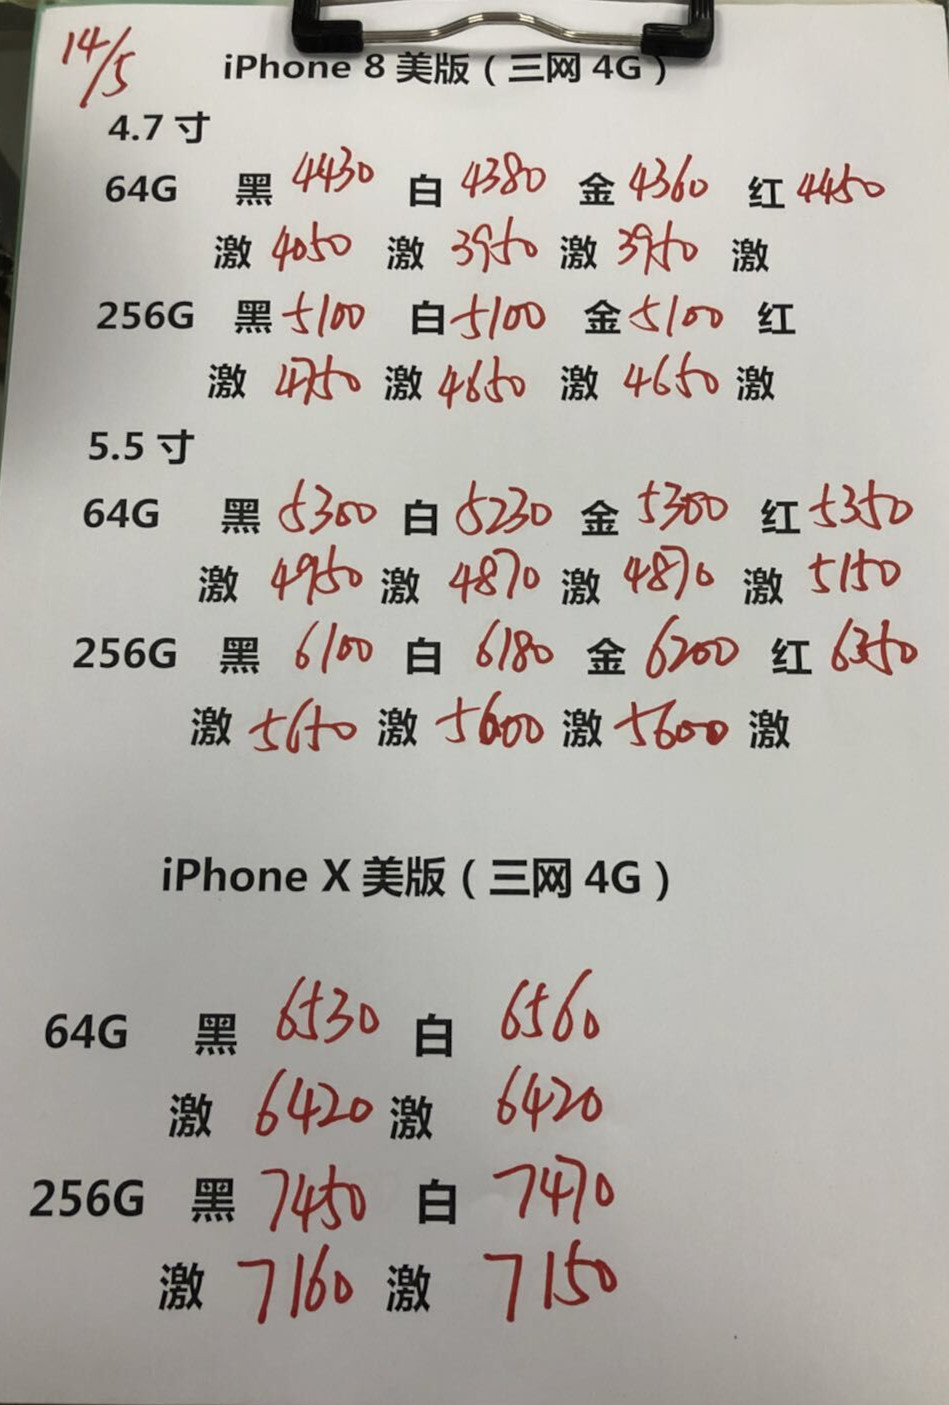 14/5
iPhone 8 美版（三网 4G）
4.7 寸
64G 黑 4430 白 4380 金 4360 红 4450
激 4050 激 3950 激 3950 激
256G 黑 5100 白 5100 金 5100 红
激 4750 激 4650 激 4650 激
5.5 寸
64G 黑 5300 白 5230 金 5300 红 5350
激 4950 激 4870 激 4870 激 5150
256G 黑 6100 白 6180 金 6200 红 6350
激 5650 激 5600 激 5600 激
iPhone X 美版（三网 4G）
64G 黑 6530 白 6560
激 6420 激 6420
256G 黑 7450 白 7470
激 7160 激 7150